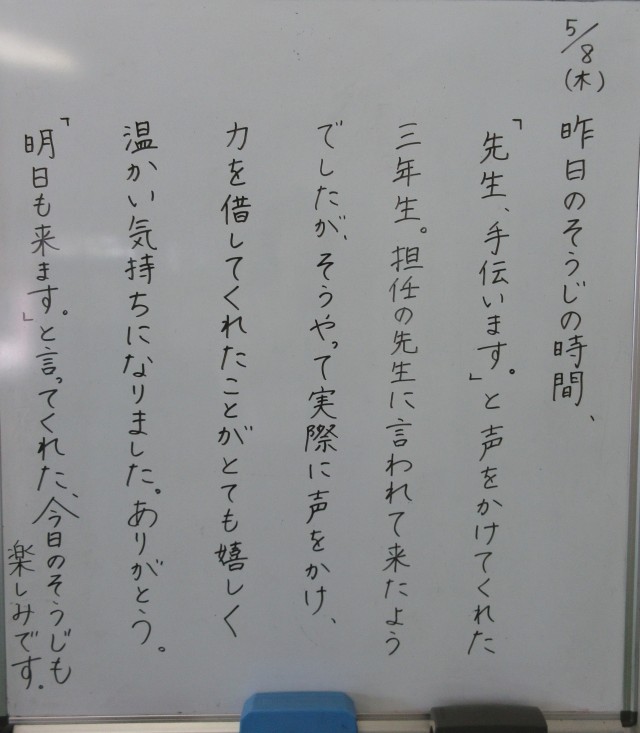 5/8(木)
昨日のそうじの時間、
「先生、手伝います。」と声をかけてくれた
三年生。担任の先生に言われて来たよう
でしたが、そうやって実際に声をかけ、
力を借してくれたことがとても嬉しく
温かい気持ちになりました。ありがとう。
「明日も来ます。」と言ってくれた、今日のそうじも
楽しみです.